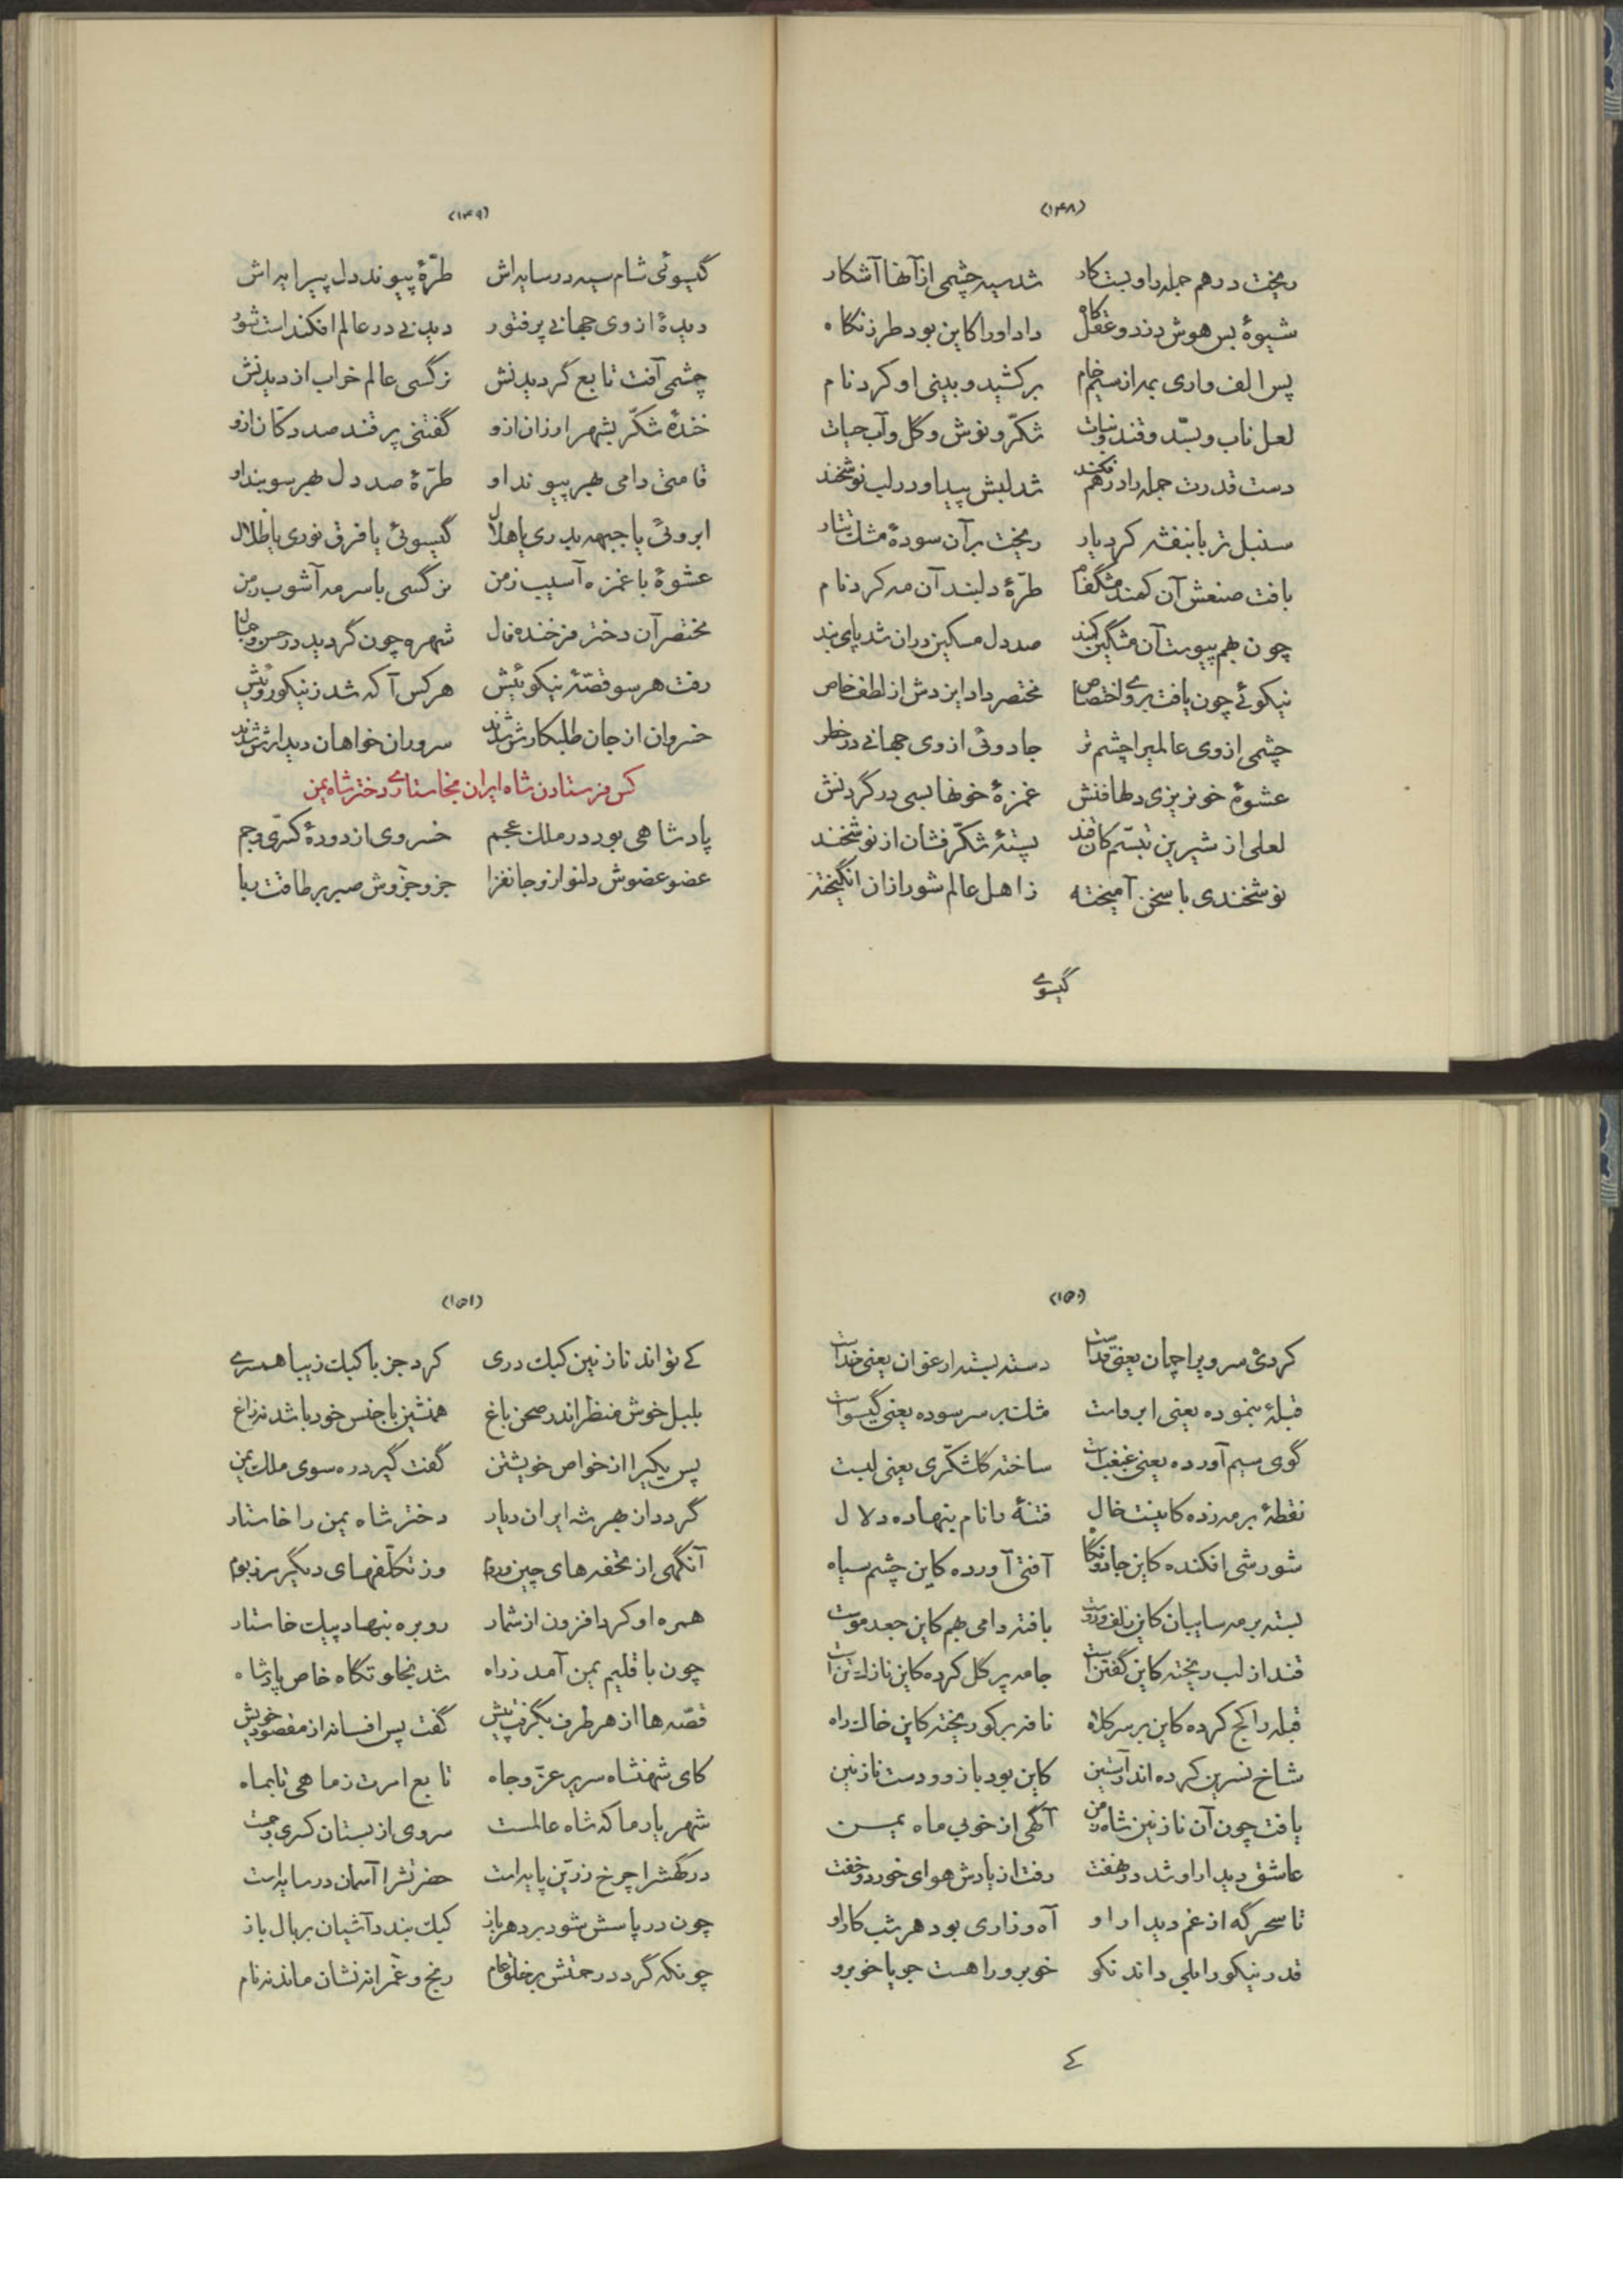 (۱۴۸)
ریخت درهم جمله را و بست کار شد سیه چشمی از آنها آشکار
شیوهٔ بس هوش دزد و عقل کاه داد او را کاین بود طرز نگاه
پس الف واری بمد از سیم خام برکشید و بینی او کرد نام
لعل ناب و بسّد و قند و نبات شکّر و نوش و گل و آب حیات
دست قدرت جمله را درهم فکند شد لبش پیدا و در لب نوشخند
سنبل تر با بنفشه کرد یار ریخت بر آن سودهٔ مشک تتار
بافت صنعش آن کمند مشگفام طرّهٔ دلبند آن مه کرد نام
چون بهم پیوست آن مشگین کمند صد دل مسکین در ان شد پای بند
نیکوئے چون یافت بروے اختصاص مختصر داد ایزدش از لطف خاص
چشمی از وی عالمیرا چشم تر جادوئی از وی جهانے در خطر
عشوهٔ خونریزی دلها فنش غمزهٔ خونها بسی در گردنش
لعلی از شیرین تبسّم کان قند پستهٔ شکّر فشان از نوشخند
نوشخندی با سخن آمیخته ز اهل عالم شور از ان انگیخته
گیسوے
(۱۴۹)
گیسوئی شام سیه در سایه اش طرّهٔ پیوند دل پیرایه اش
دیدهٔ از وی جهانے پر فتور دیدنے در عالم افکند است شور
چشمی آفت تابع گردیدنش نرگسی عالم خراب از دیدنش
خندهٔ شکّر بشهر ارزان ازو گفتنی پر قند صد دکّان ازو
قامتی دامی بهر پیوند او طرّهٔ صد دل بهر سو بند او
ابروئی با جبهه بدری با هلال گیسوئی با فرق نوری با ظلال
عشوهٔ با غمزه آسیب زمن نرگسی با سرمه آشوب زمن
مختصر آن دختر فرخنده فال شهره چون گردید در حسن و جمال
رفت هر سو قصّهٔ نیکوئیش هر کس آگه شد ز نیکو روئیش
خسروان از جان طلبکارش شدند سروران خواهان دیدارش شدند
کس فرستادن شاه ایران بخاستارے دختر شاه یمن
پادشاهی بود در ملک عجم خسروی از دودهٔ کسری و جم
عضو عضوش دلنواز و جانفزا جزو جزوش صبر بر طاقت ربا
(۱۵۰)
کردئ سرو یرا چمان یعنی قداست دسته بسته ارغوان یعنی خداست
قبلهٔ بنموده یعنی ابروست مشک بر سر سوده یعنی گیسواست
گوی سیم آورده یعنی غبغبست ساخته کان شکّری یعنی لبست
نقطهٔ بر مه زده کاینست خال فتنهٔ را نام بنهاده دلال
شورشی افکنده کاین جادو نگاه آفتی آورده کاین چشم سیاه
بسته بر مه سایبان کاین زلف و روست بافته دامی بهم کاین جعد موست
قند از لب ریخته کاین گفتن است جامه پر گل کرده کاین نازک تن است
قبله را کج کرده کاین بر سر کلاه نافه بر کو ریخته کاین خاک راه
شاخ نسرین کرده اندر آستین کاین بود بازو و دست نازنین
یافت چون آن نازنین شاه زمن آگهی از خوبی ماه یمن
عاشق دیدار او شد در نهفت رفت از یادش هوای خورد و خفت
تا سحر گه از غم دیدار او آه و زاری بود هر شب کار او
قدر نیکو را بلی داند نکو خوبرو را هست جویا خوبرو
کے
(۱۵۱)
کے تواند نازنین کبک دری کرد جز با کبک زیبا همسرے
بلبل خوش منظر اندر صحن باغ همنشین با جنس خود باشد نه زاغ
پس یکیرا از خواص خویشتن گفت گیرد ره سوی ملک یمن
گردد از بهر شه ایران دیار دختر شاه یمن را خاستار
آنگهی از تحفه های چین و روم وز تکلّفهای دیگر مرز و بوم
همره او کرد افزون از شمار رو بره بنهاد پیک خاستار
چون باقلیم یمن آمد ز راه شد بخلوتگاه خاص پادشاه
قصّه ها از هر طرف بگرفت پیش گفت پس افسانه از مقصود خویش
کای شهنشاه سریر عزّ و جاه تابع امرت ز ماهی تا بماه
شهریار ما که شاه عالمست سروی از بستان کسری و جمست
درگهشرا چرخ زرّین پایه است حضرتشرا آسمان در سایه است
چون در پاسش شود بر دهر باز کبک بندد آشیان بر بال باز
چونکه گردد رحمتش بر خلق عام رنج و غمرا نه نشان ماند نه نام